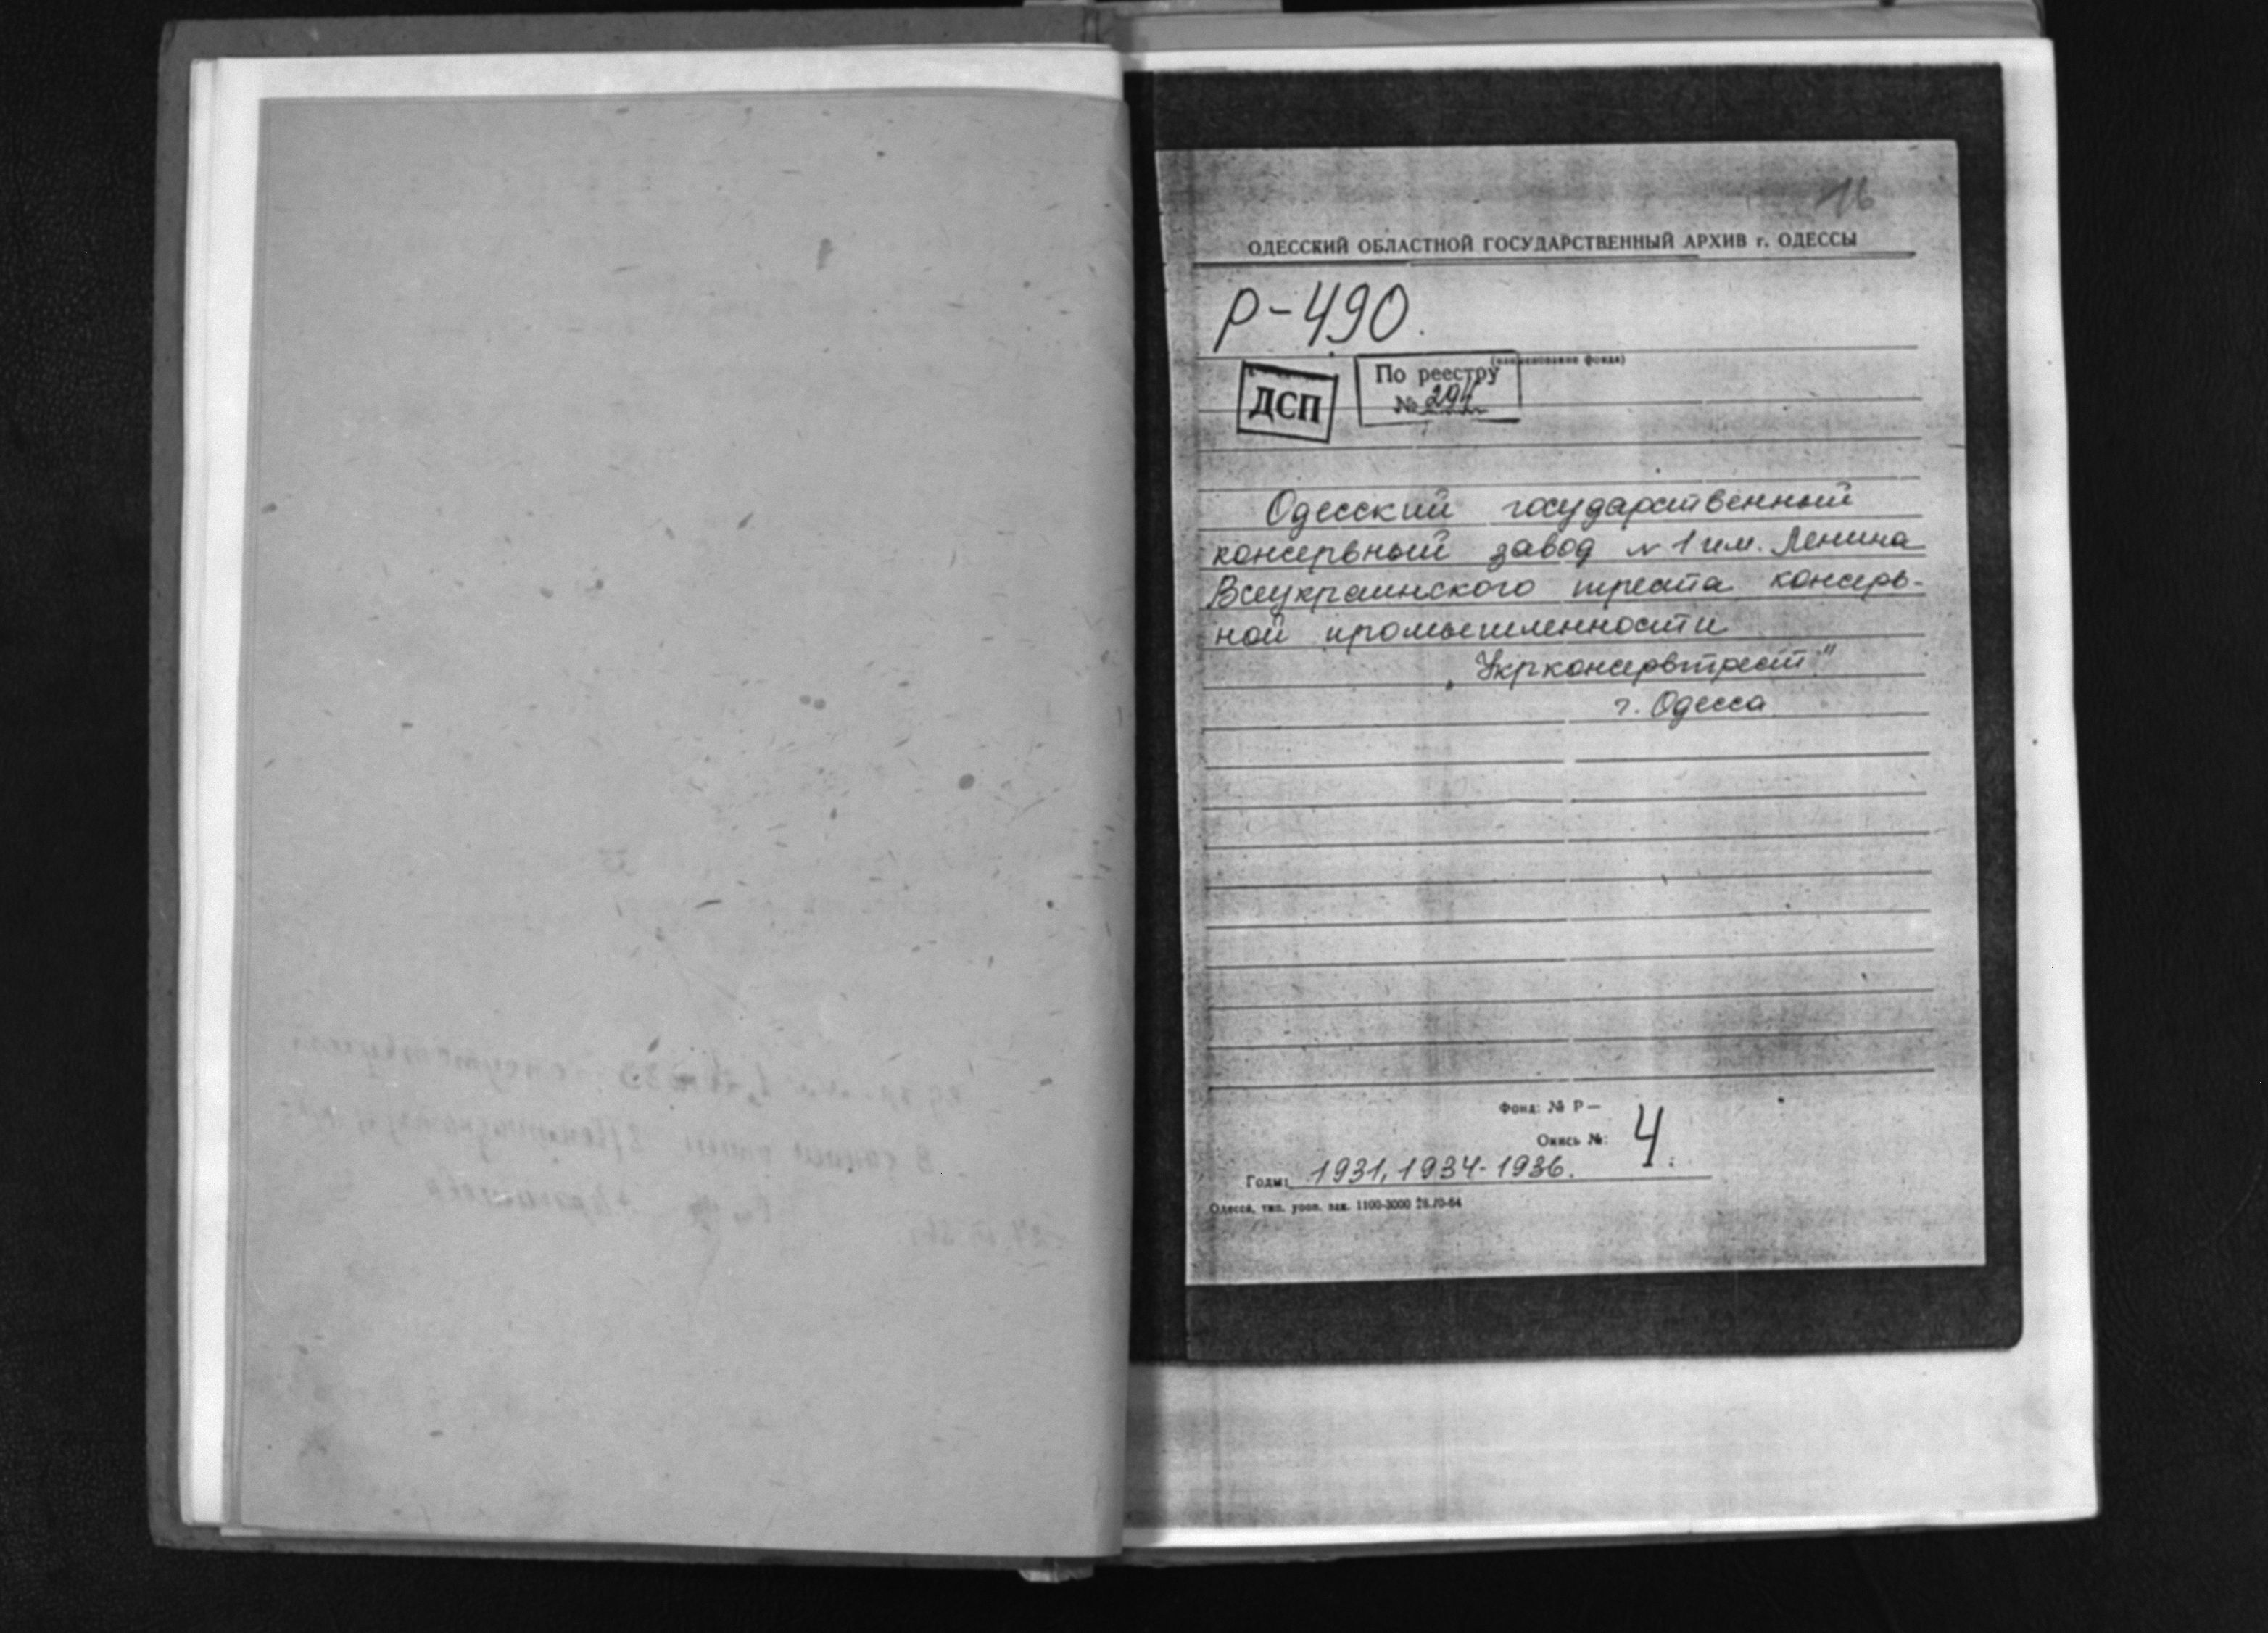 16
ОДЕССКИЙ ОБЛАСТНОЙ ГОСУДАРСТВЕННЫЙ АРХИВ г. ОДЕССЫ
Р-490.
(наименование фонда)
ДСП
По реестру
№ 294
Одесский государственный
консервный завод №1 им. Ленина
Всеукраинского треста консерв-
ной промышленности
„Укрконсервтрест"
г. Одесса
Фонд: № Р—
Опись №: 4.
Годы: 1931, 1934-1936.
Одесса, тип. упоп. зак. 1100-3000